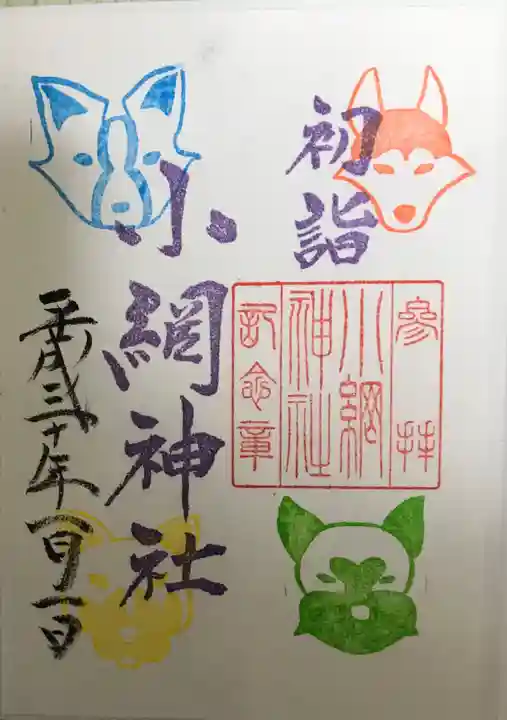 初詣
参拝
小網
神社
記念章
小網神社
平成三十年一月一日